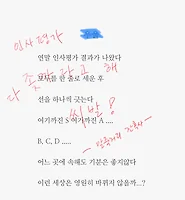 인사평가
연말 인사평가 결과가 나왔다
다 좆까라고 해
모두를 한 줄로 세운 후
선을 하나씩 긋는다
씨발!
여기까진 S 여기까진 A .....
B, C, D .....
어느 곳에 속해도 기분은 좋지않다
이런 세상은 영원히 바뀌지 않을까...?